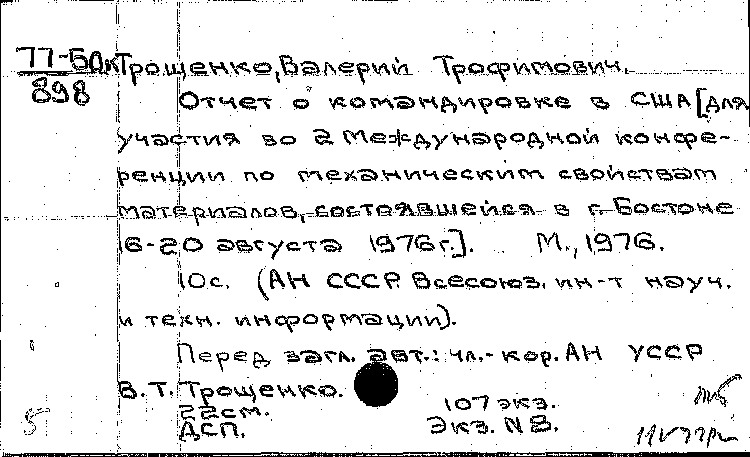 77-50дк Трощенко, Валерий Трофимович.
898
Отчет о командировке в США [для
участия во 2 Международной конфе-
ренции по механическим свойствам
материалов, состоявшейся в г. Бостоне
16-20 августа 1976 г.]. М., 1976.
10 с. (АН СССР. Всесоюз. ин-т науч.
и техн. информации).
Перед загл. авт.: чл.-кор. АН УССР
В. Т. Трощенко.
22 см. 107 экз.
ДСП. Экз. N 8.
5